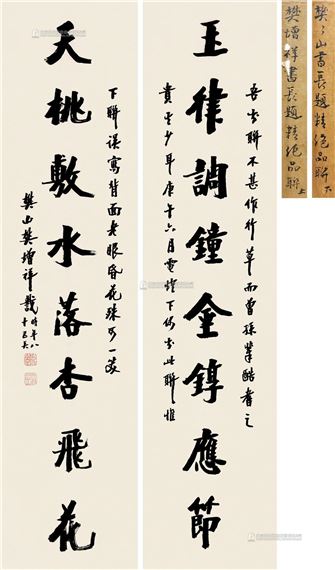 樊山書長題精絕品聯 下
樊增祥書長題精絕品聯 上
吾書聯不甚作行草而曾孫酷耆之
玉律調鐘金錞應節
貴其少耳庚午六月電燈下偶書此聯惟
下聯誤寫背面老眼昏花殊可一笑
夭桃敷水落杏飛花
樊山樊增祥戲
時年八
十又五矣